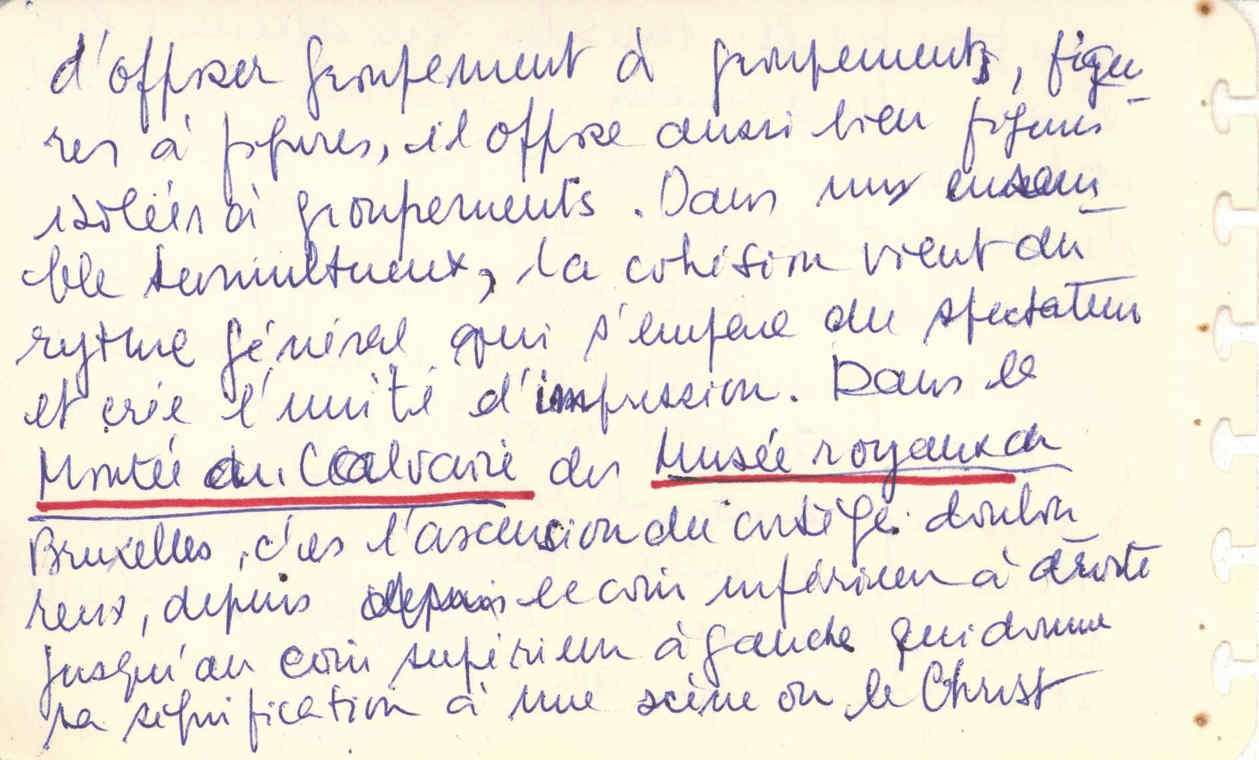 d'opposer groupement à groupements, figu-
res à figures, il oppose aussi bien figures
isolées à groupements. Dans un ensem-
ble tumultueux, la cohésion vient du
rytme général qui s'empare du spectateur
et crée l'unité d'impression. Dans le
Montée du Calvaire des Musée royaux de
Bruxelles, c'es l'ascension du cortège doulou
reux, depuis depuis le coin inférieur à droite
jusqu'au coin supérieur à gauche qui donne
sa signification à une scène ou le Christ